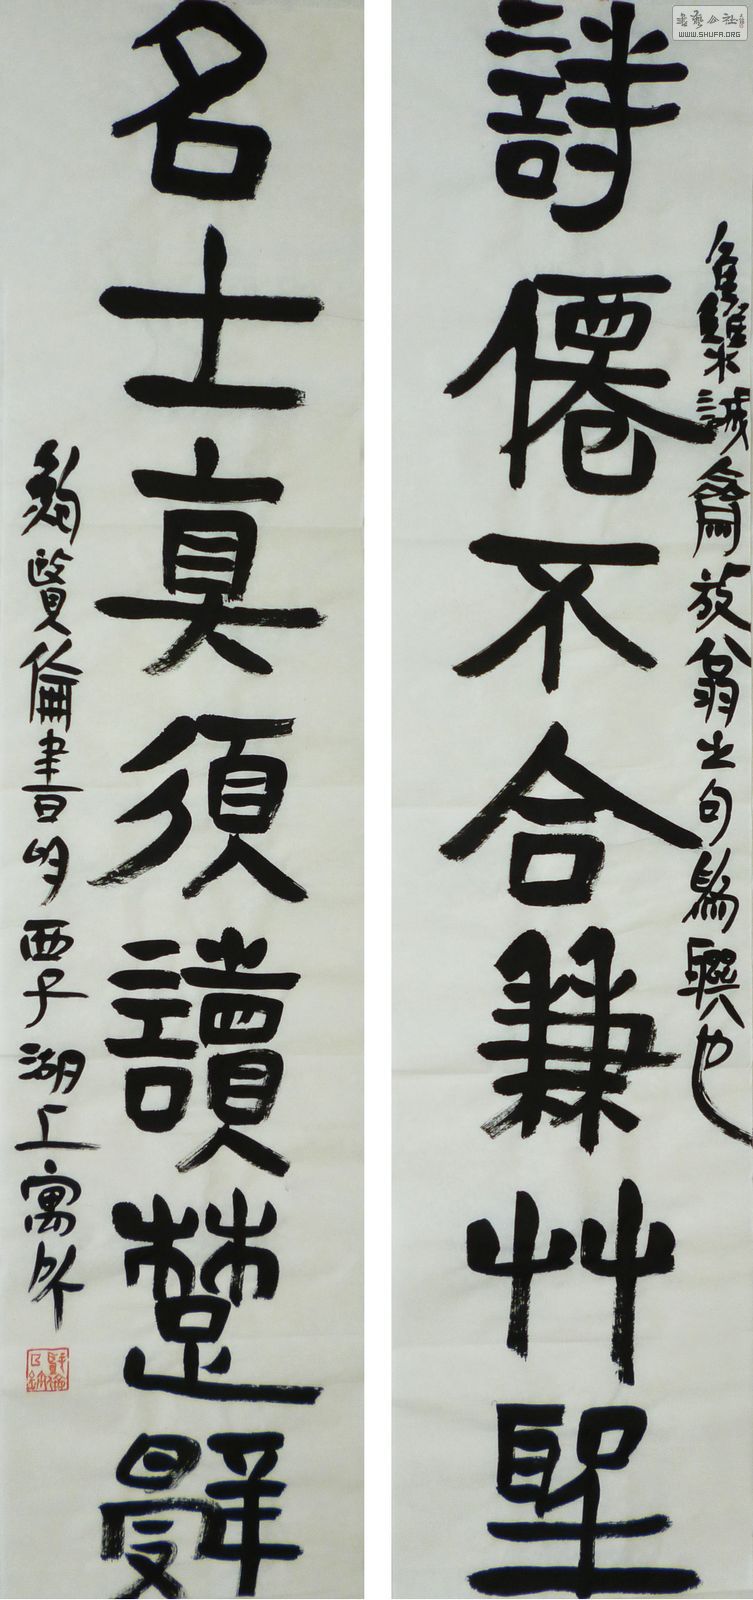 詩僊不合兼艸聖
誠齋放翁之句為聯也
名士真須讀楚辭
賢倫書於西子湖上寓所
書藝公社
WWW.SHUFA.ORG